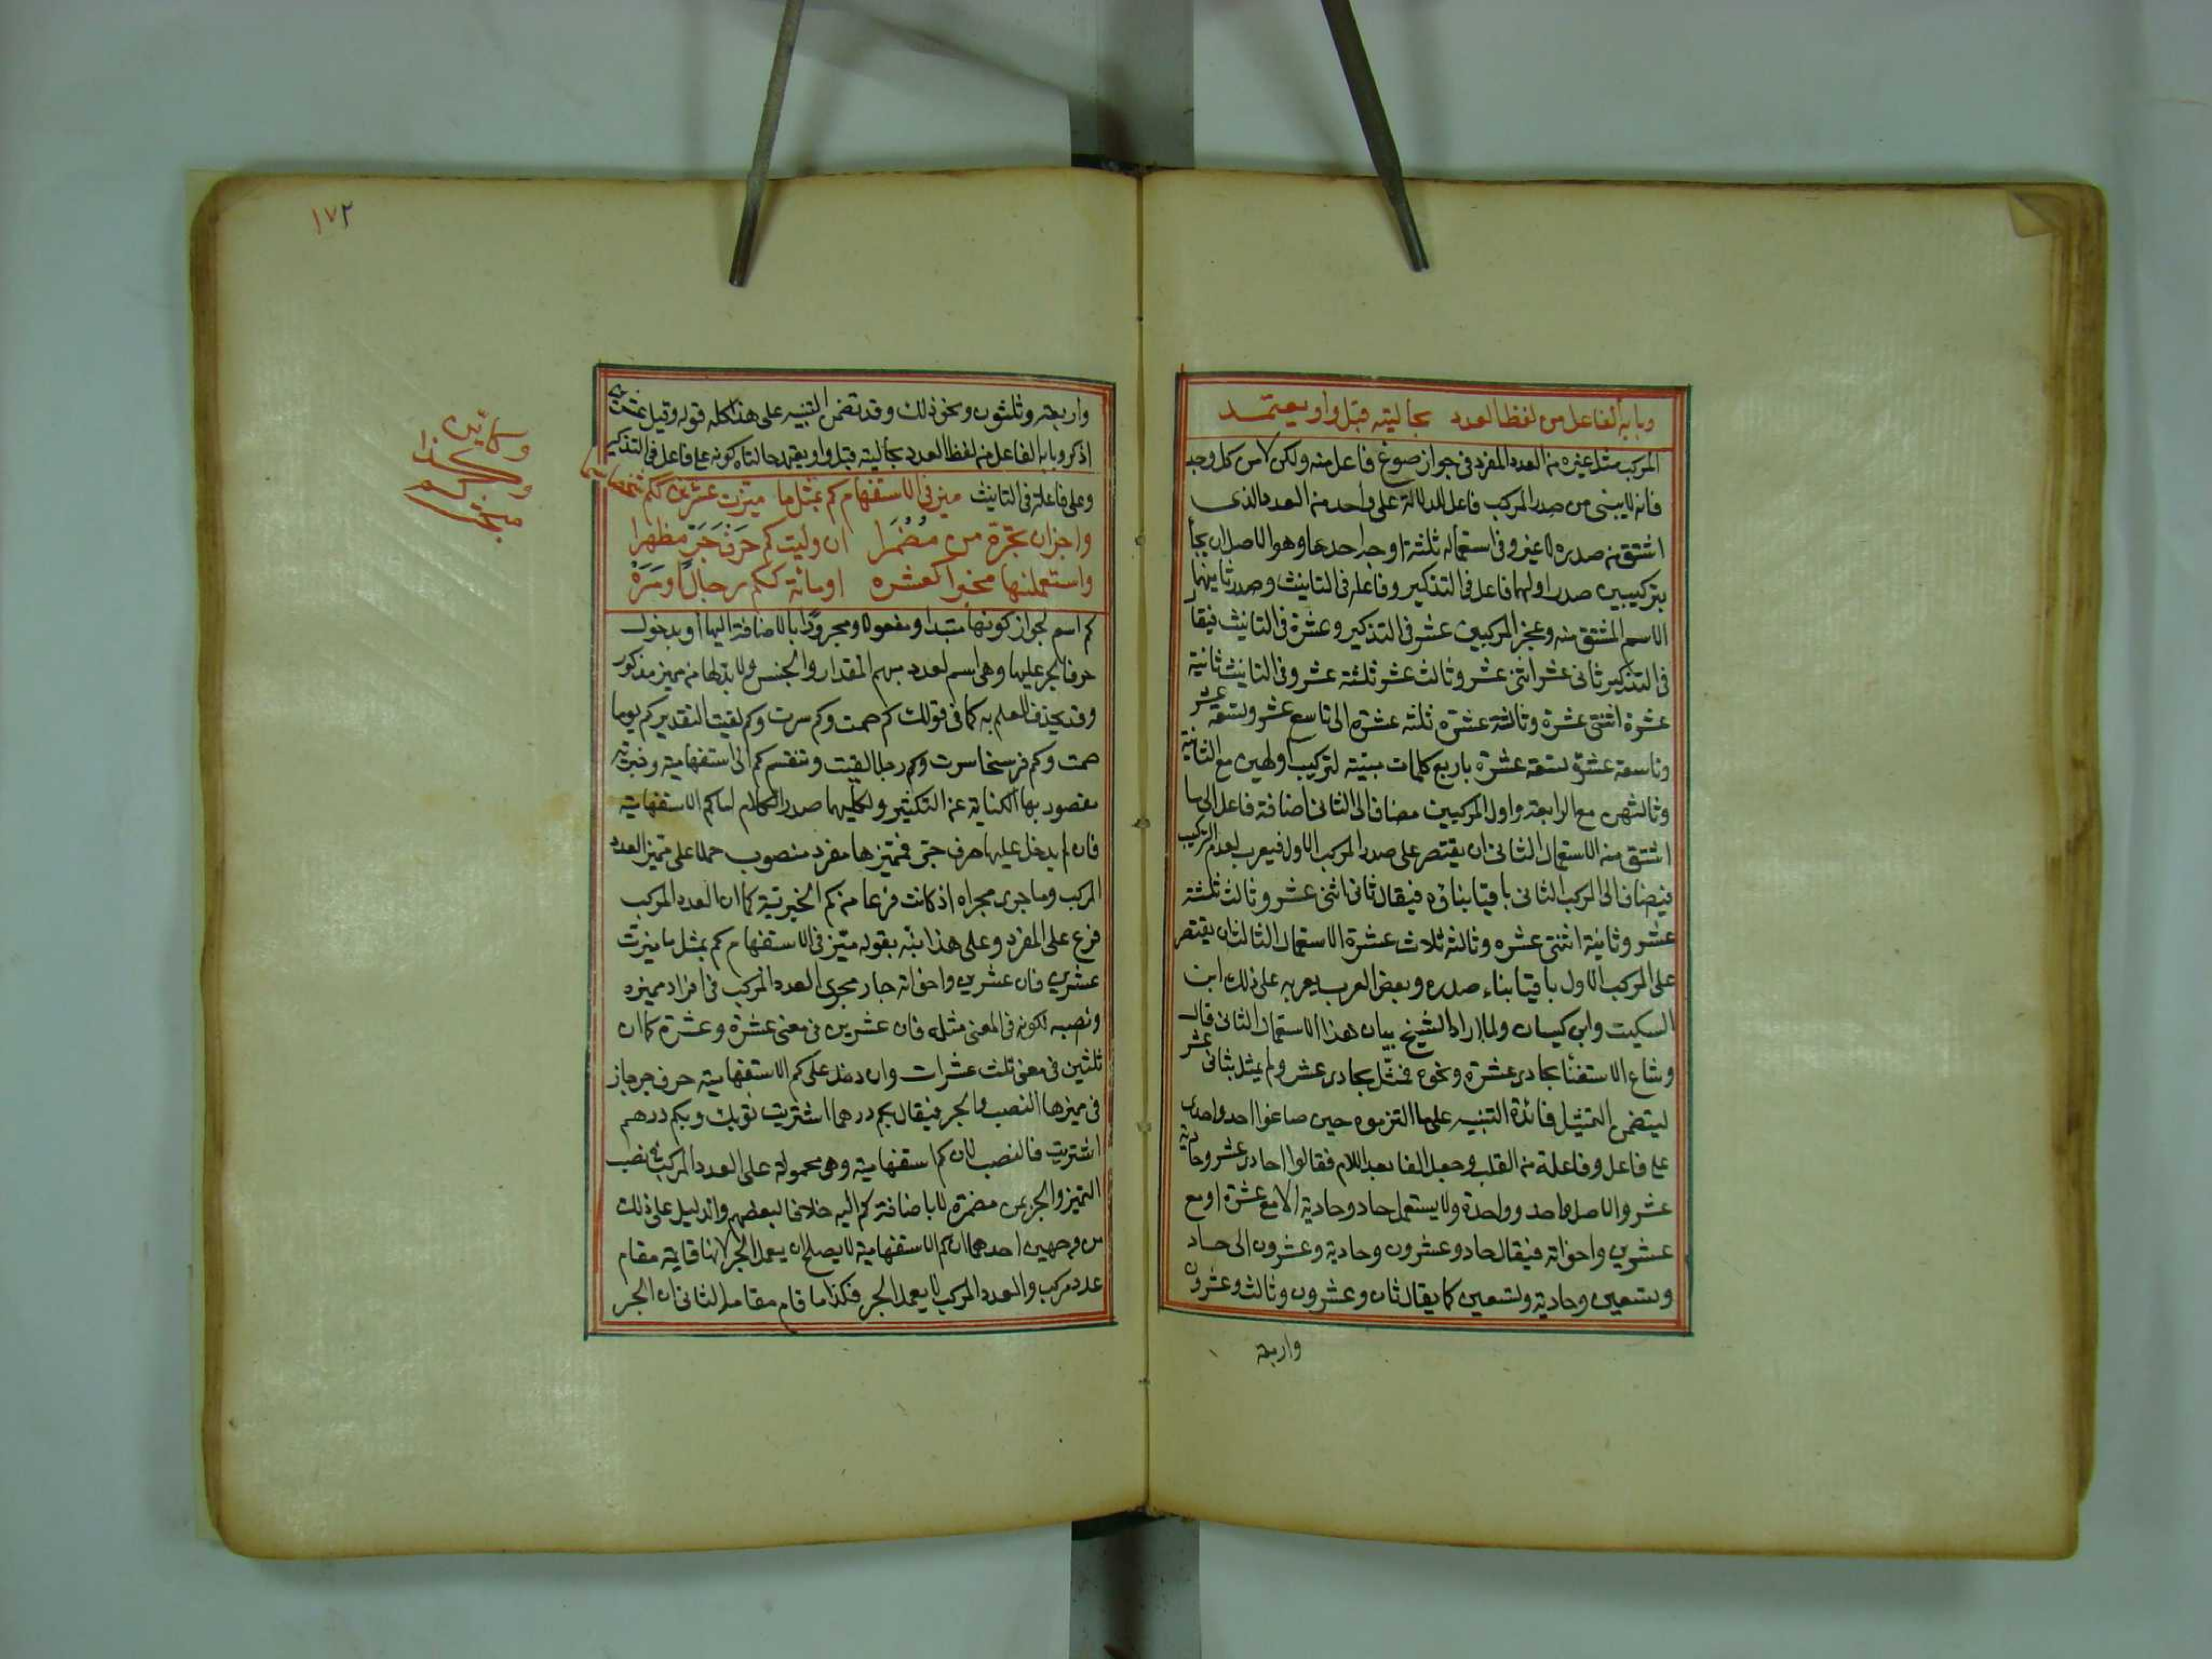 وبابه الفاعل من لفظ العدد بحالتيه قبل واو يعتمد
المركب مثل غيره من العدد المفرد في جواز صوغ فاعل منه ولكن لا من كل وجه
فانه لا يبنى من صدر المركب فاعل للدلالة على واحد من العدد الذي
اشتق من صدره لا غير وفي استعماله ثلثة اوجه احدها وهو الاصل ان يجاء
بتركيبين صدر اولهما فاعل في التذكير وفاعلة في التانيث وصدر ثانيهما
الاسم المشتق منه وعجز المركبين عشر في التذكير وعشرة في التانيث فيقال
في التذكير ثاني عشر اثني عشر وثالث عشر ثلثة عشر وفي التانيث ثانية
عشرة اثنتي عشرة وثالثة عشرة ثلثه عشرة الى تاسع عشر وتسعة عشر
وتاسعة عشرة تسعة عشرة باربع كلمات مبنية لتركيب اولهن مع الثانية
وثالثهن مع الرابعة واول المركبين مضاف الى الثاني اضافة فاعل الى ما
اشتق منه الاستعمال الثاني ان يقتصر على صدر المركب الاول فيعرب لعدم التركيب
فيضاف الى المركب الثاني باقيا بناؤه فيقال ثاني اثني عشر وثالث ثلثة
عشر وثانية اثنتي عشره وثالثه ثلاث عشرة الاستعمال الثالث ان يقتصر
على المركب الاول باقيا بناء صدره وبعض العرب يعربه على ذلك ابن
السكيت وابن كيسان ولما اراد الشيخ بيان هذا الاستعمال الثاني قال
وشاع الاستغنا بحادي عشرة ونحوه فمثل بحادي عشر ولم يمثل بثاني عشر
ليتضمن التمثيل فائدة التنبيه على ما التزموه حين صاغوا احد واحدى
على فاعل وفاعلة من القلب وجعل الفا بعد اللام فقالوا احادي عشر وحادية
عشر والاصل واحد وواحدة ولا يستعمل حاد وحادية الا مع عشرة او مع
عشرين واخواته فيقال حاد وعشرون وحادية وعشرون الى حاد
وتسعين وحادية وتسعين كما يقال ثان وعشرون وثالث وعشرون
واربعة
١٧٢
واربعة وثلثون ونحو ذلك وقد تضمن التنبيه على هذا كله قوله وقبل عشرين
اذكر وبابه الفاعل من لفظ العدد بحاليته قبل واو يعتمد حالتاه كونه على فاعل في التذكير
وعلى فاعلة في التانيث ميز في الاستفهام كم بمثل ما ميزت عشرين ككم شخصا سما
واجز ان تجرّه من مُضْمَرا ان وليت كم حَرفَ جَرّ مظهرا
واستعملنها مخبرا كعشره او مائة ككم رجال او مَرَهْ
كم اسم لجواز كونها مبتدا ومفعولا ومجرورًا بالاضافة اليها او بدخول
حرف الجر عليها وهي اسم لعدد مبهم المقدار والجنس ولا بد لها من مميز مذكور
وقد يحذف للعلم به كما في قولك كم صمت وكم سرت وكم لقيت التقدير كم يوما
صمت وكم فرسخا سرت وكم رجلا لقيت وتنقسم كم الى استفهامية وخبرية
مقصود بها الكناية عن التكثير ولكليهما صدر الكلام اما كم الاستفهامية
فان لم يدخل عليها حرف جر فمميزها مفرد منصوب حملا على مميز العدد
المركب وما جرى مجراه اذ كانت فرعا من كم الخبرية كما ان العدد المركب
فرع على المفرد وعلى هذا نبّه بقوله ميّز في الاستفهام كم بمثل ما ميزت
عشرين فان عشرين واخواته جار مجرى العدد المركب في افراد مميزه
ونصبه لكونه في المعنى مثله فان عشرين في معنى عشرة وعشرة كما ان
ثلثين في معنى ثلث عشرات وان دخل على كم الاستفهامية حرف جر جاز
في مميزها النصب والجر فيقال بكم درهما اشتريت ثوبك وبكم درهم
اشتريت فالنصب لان كم استفهامية وهي محمولة على العدد المركب في نصب
التميز والجر بمن مضمرة لا باضافة كم اليه خلافا لبعضهم والدليل على ذلك
من وجهين احدهما ان كم الاستفهامية لا يصلح ان يعمل الجر لانها قايمة مقام
عدد مركب والعدد المركب لا يعمل الجر فكذا ما قام مقامه الثاني ان الجر